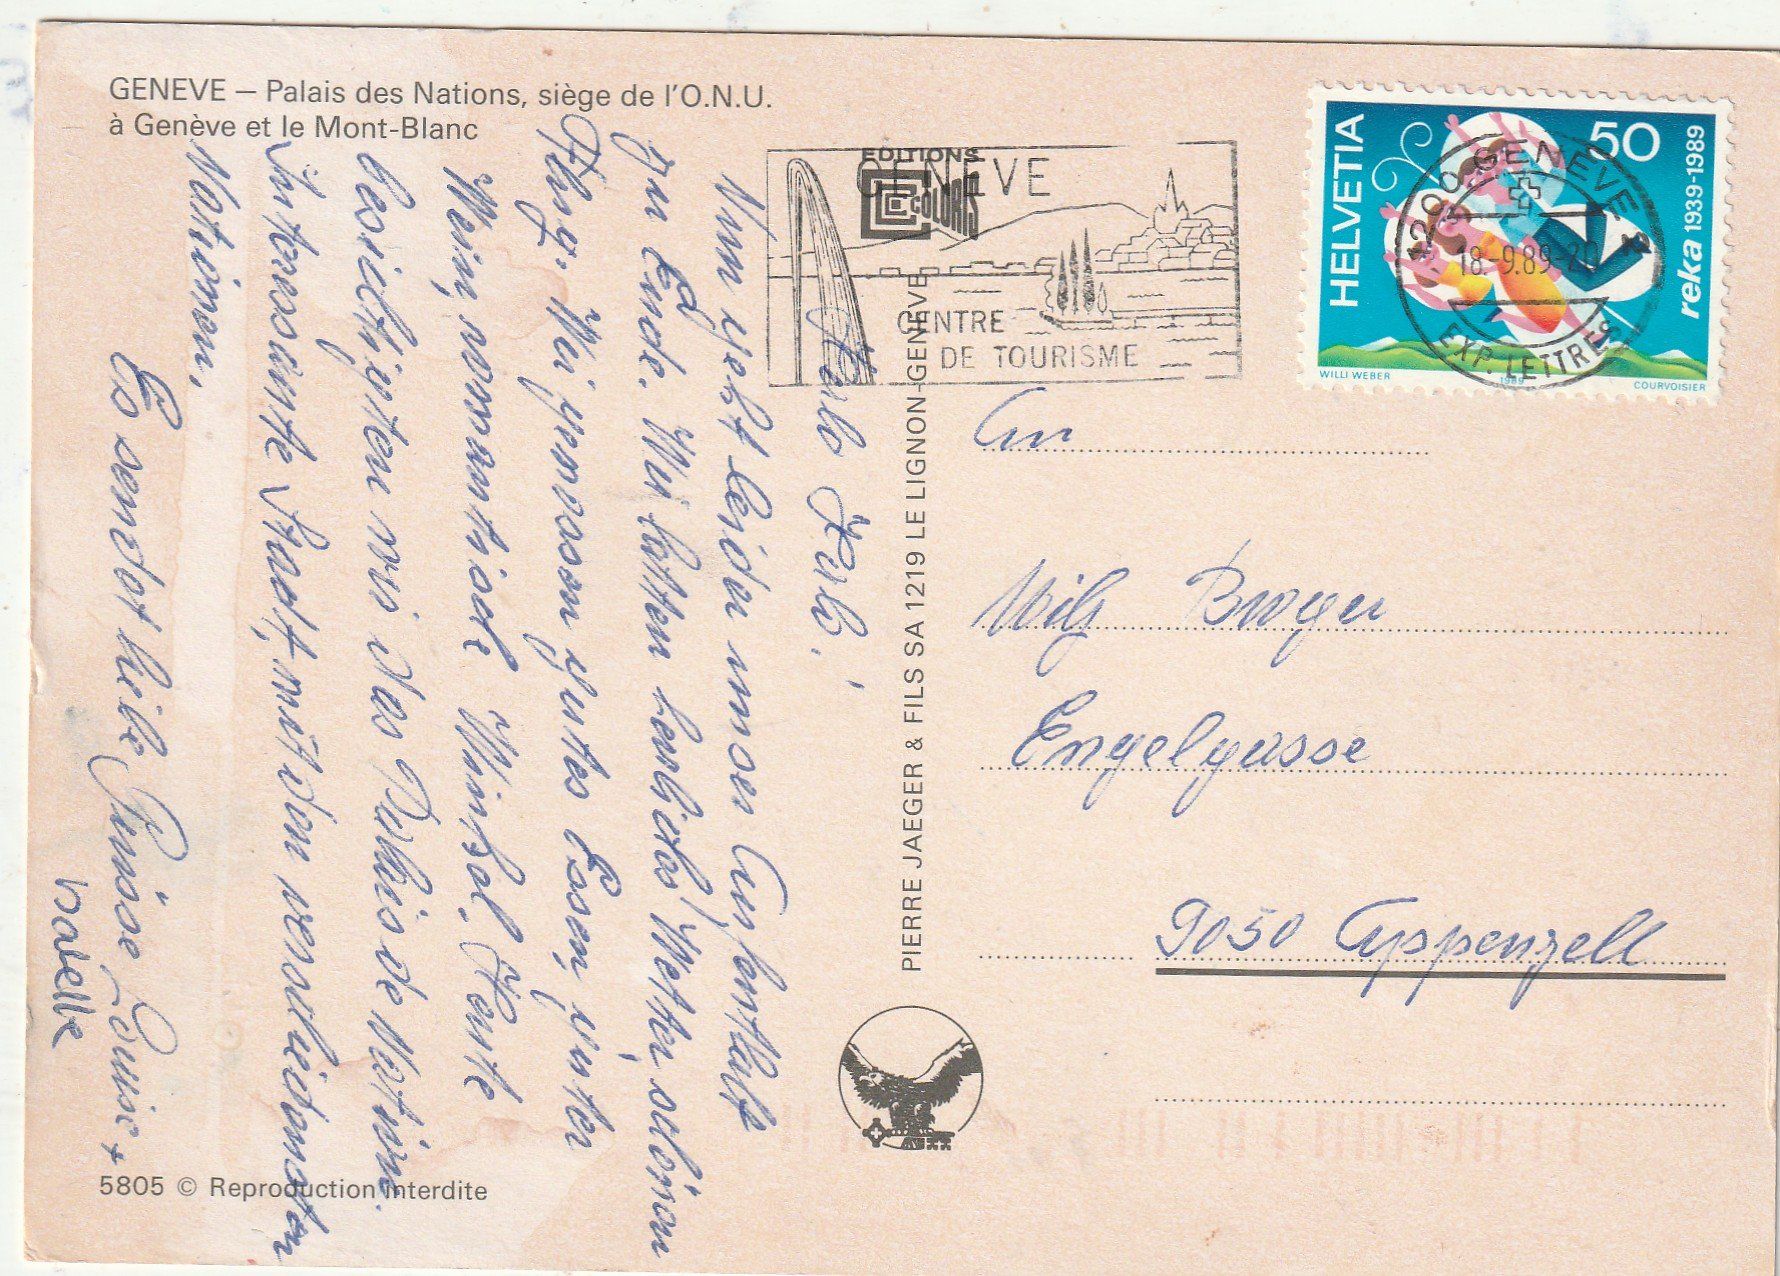 GENEVE – Palais des Nations, siège de l'O.N.U.
à Genève et le Mont-Blanc
EDITIONS
COLORIS
GENEVE
CENTRE
DE TOURISME
HELVETIA
50
reka 1939-1989
WILLI WEBER
1989
COURVOISIER
1200 GENEVE 2
18.-9.89-20
EXP. LETTRES
Hallo
Nun geht leider unser Aufenthalt
zu Ende. Wir hatten herrliches Wetter, schönen
Flug. Wir genossen gutes Essen, guter
Wein, romantische
besichtigten wir das Palais de Nation.
Interessante Stadt, mit den verschiedensten
Nationen.
Es sendet liebe Grüsse Louise +
noëlle
PIERRE JAEGER & FILS SA 1219 LE LIGNON-GENEVE
An
Wily Broger
Engelgasse
9050 Appenzell
5805 © Reproduction interdite